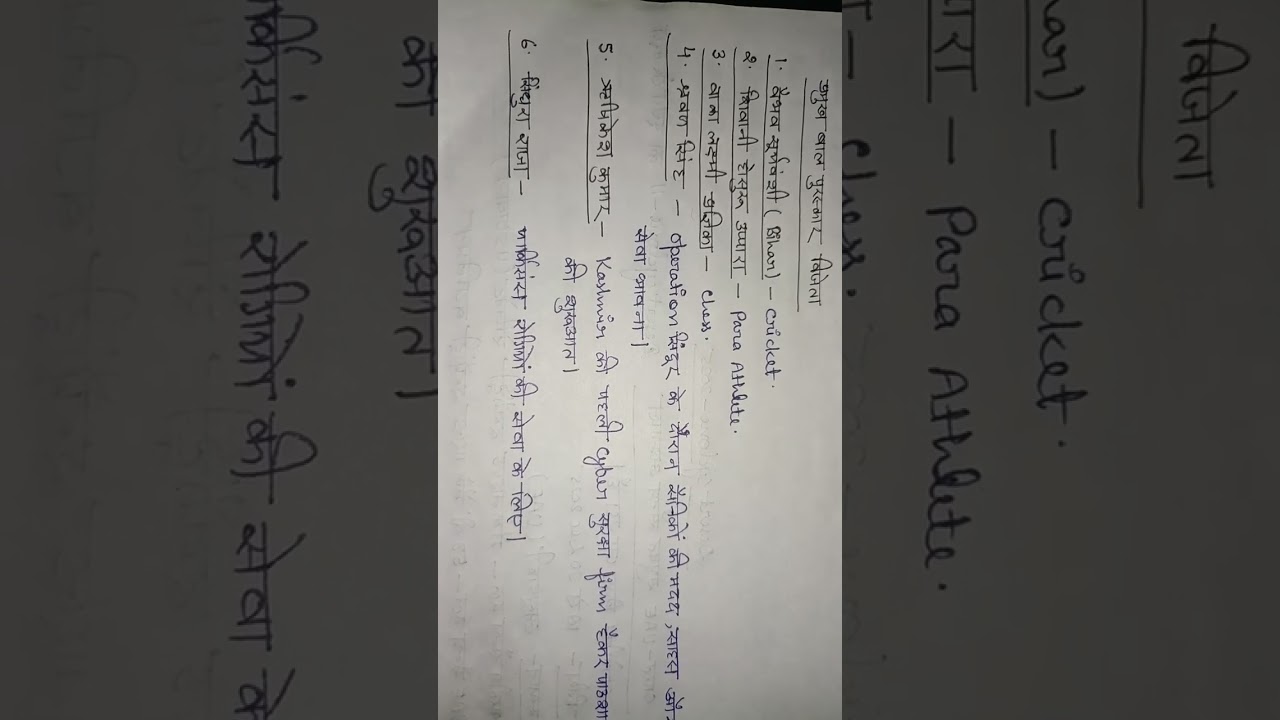 प्रमुख बाल पुरस्कार विजेता
1. वैभव सूर्यवंशी (Bihar) - cricket.
2. शिवानी होसुरू उप्पारा - Para Athlete.
3. वाका लक्ष्मी प्रज्ञिका - chess.
4. श्रवण सिंह - operation सिंदूर के दौरान सैनिकों की मदद, साहस और
सेवा भावना।
5. ऋषिकेश कुमार - Kashmir की पहली cyber सुरक्षा firm हैकर पाठशा
की शुरुआत।
6. राजा - पार्किंसंस रोगियों की सेवा के लिए।